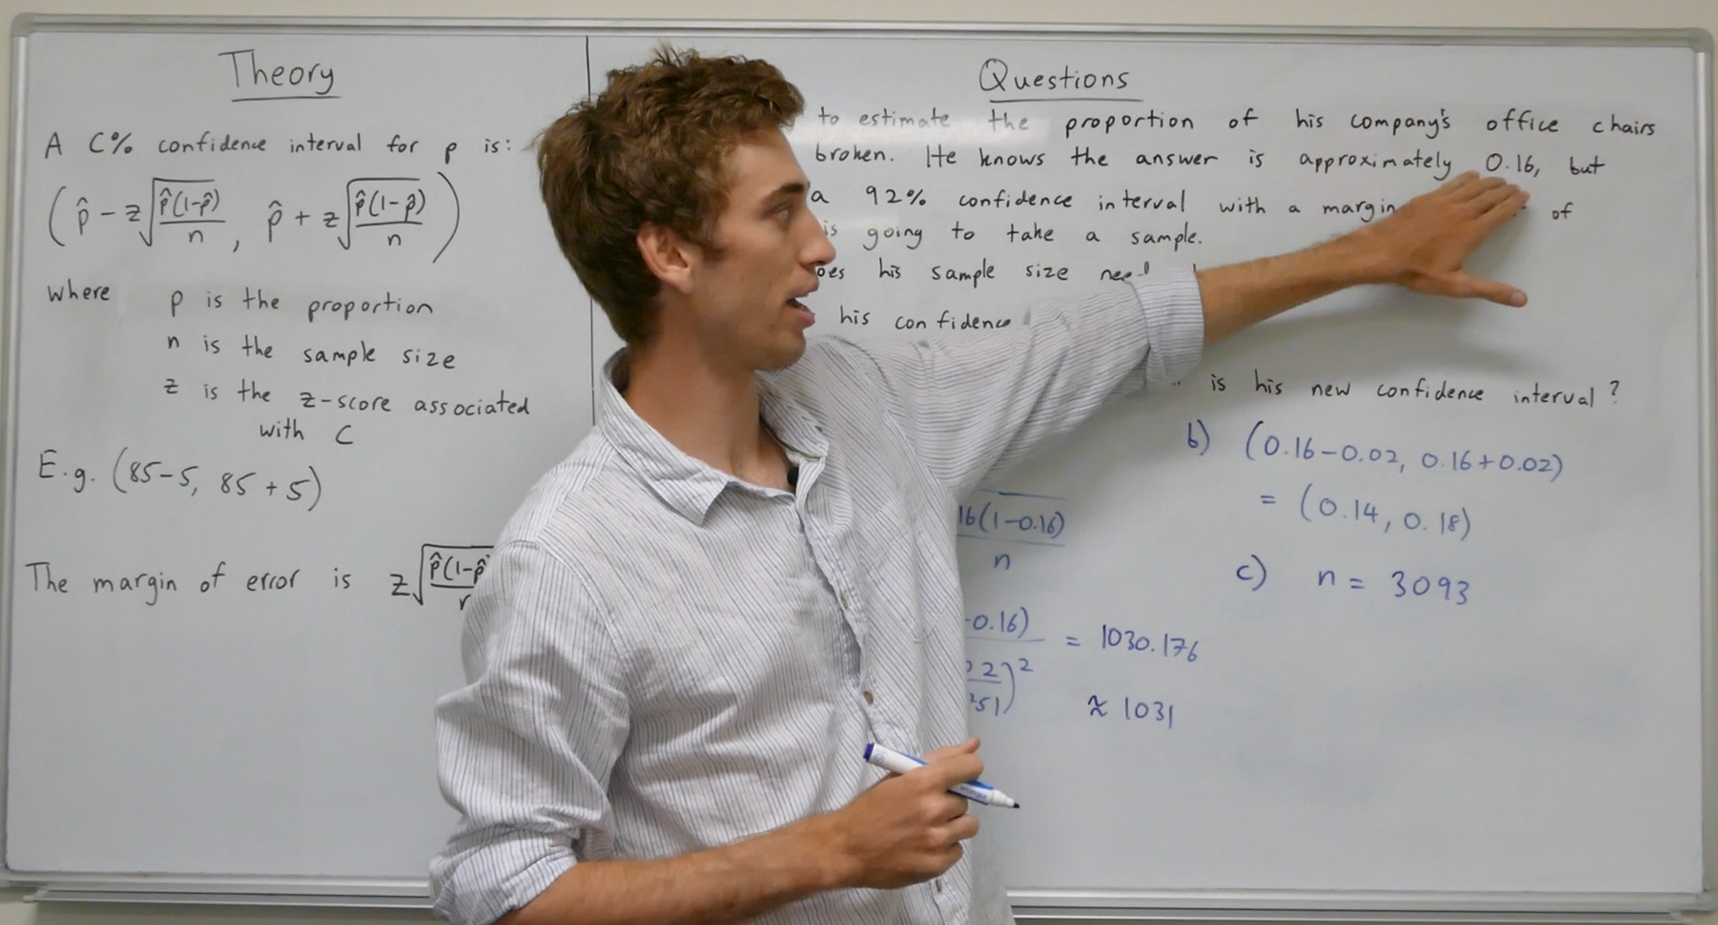 Theory
A C% confidence interval for p is:
(p̂ - z√(p̂(1-p̂)/n), p̂ + z√(p̂(1-p̂)/n))
where p is the proportion
n is the sample size
z is the z-score associated
with C
E.g. (85-5, 85+5)
The margin of error is z√(p̂(1-p̂
Questions
to estimate the proportion of his company's office chairs
broken. He knows the answer is approximately 0.16, but
a 92% confidence interval with a margin of
is going to take a sample.
his sample size
his confidence
is his new confidence interval?
16(1-0.16)
n
-0.16) = 1030.176
2)²
51)
≈ 1031
b) (0.16-0.02, 0.16+0.02)
= (0.14, 0.18)
c) n = 3093